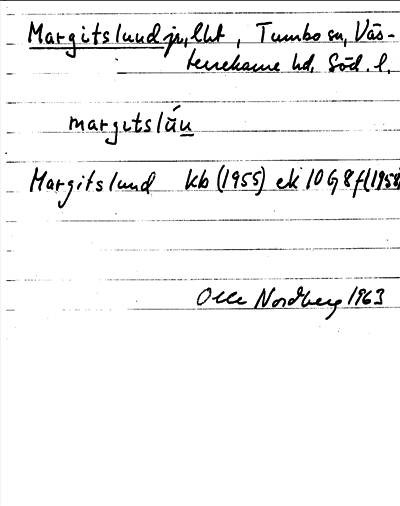 Margitslund jr, lht, Tumbo sn, Väs-
terrekarne hd, Söd. l.
margitslŭ́n
Margitslund kb (1955) ek 10G8f (1958)
Olle Nordberg 1963